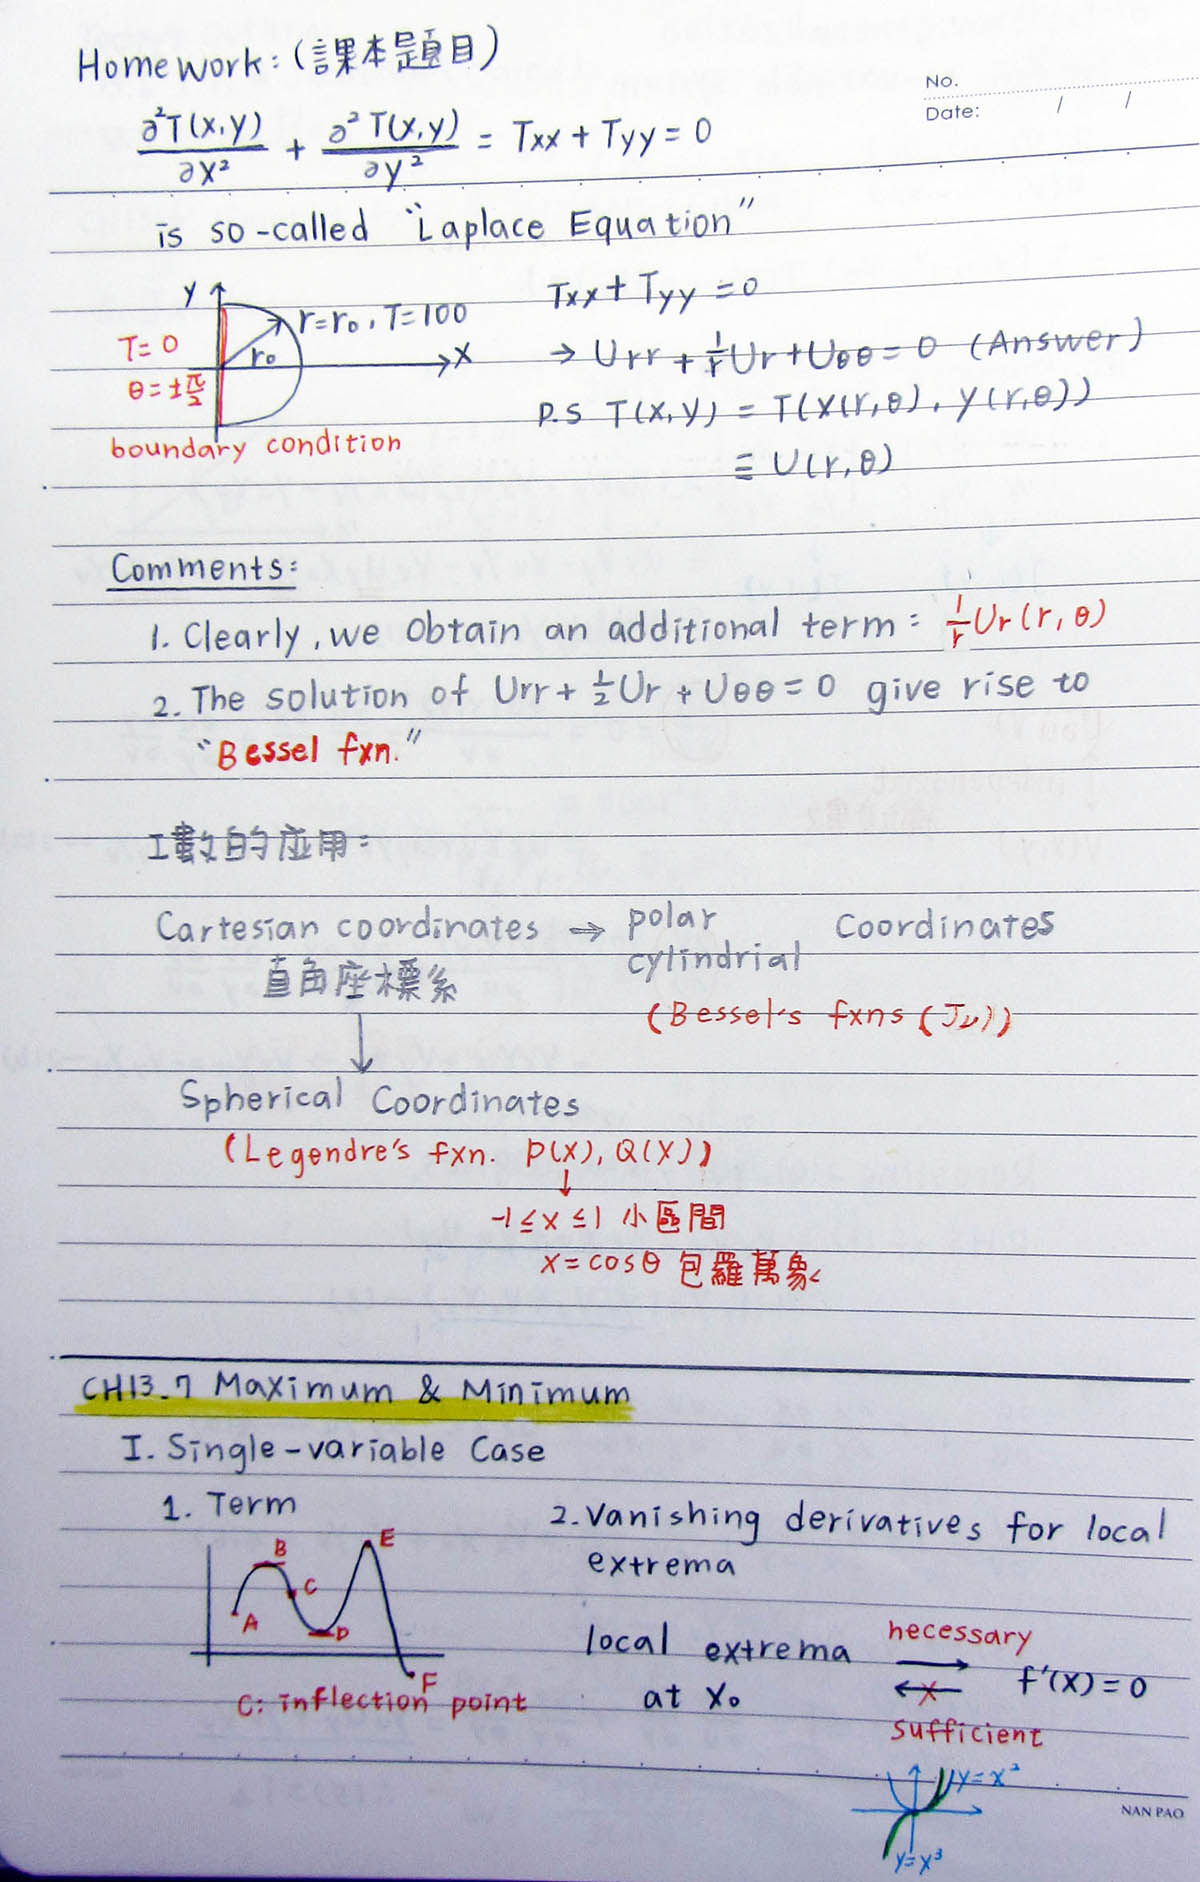 Homework: (課本題目)
No.
Date: / /
∂²T(x,y)/∂x² + ∂²T(x,y)/∂y² = Txx + Tyy = 0
is so-called "Laplace Equation"
y
r=r₀, T=100
T=0
r₀
x
θ=±π/2
boundary condition
Txx + Tyy = 0
→ Urr + 1/r Ur + Uθθ = 0 (Answer)
P.S T(x,y) = T(x(r,θ), y(r,θ))
≡ U(r,θ)
Comments:
1. Clearly, we obtain an additional term: 1/r Ur(r,θ)
2. The solution of Urr + 1/2 Ur + Uθθ = 0 give rise to
"Bessel fxn."
工數的应用:
Cartesian coordinates → polar Coordinates
cylindrial
直角座標系
(Bessel's fxns (Jν))
↓
Spherical Coordinates
(Legendre's fxn. P(x), Q(x))
↓
-1≤x≤1 小區間
x=cosθ 包羅萬象
CH13.7 Maximum & Minimum
I. Single-variable Case
1. Term
A
B
C
D
E
F
C: inflection point
2. Vanishing derivatives for local
extrema
local extrema necessary → f'(x)=0
at x₀ ← sufficient
y=x²
y=x³
NAN PAO